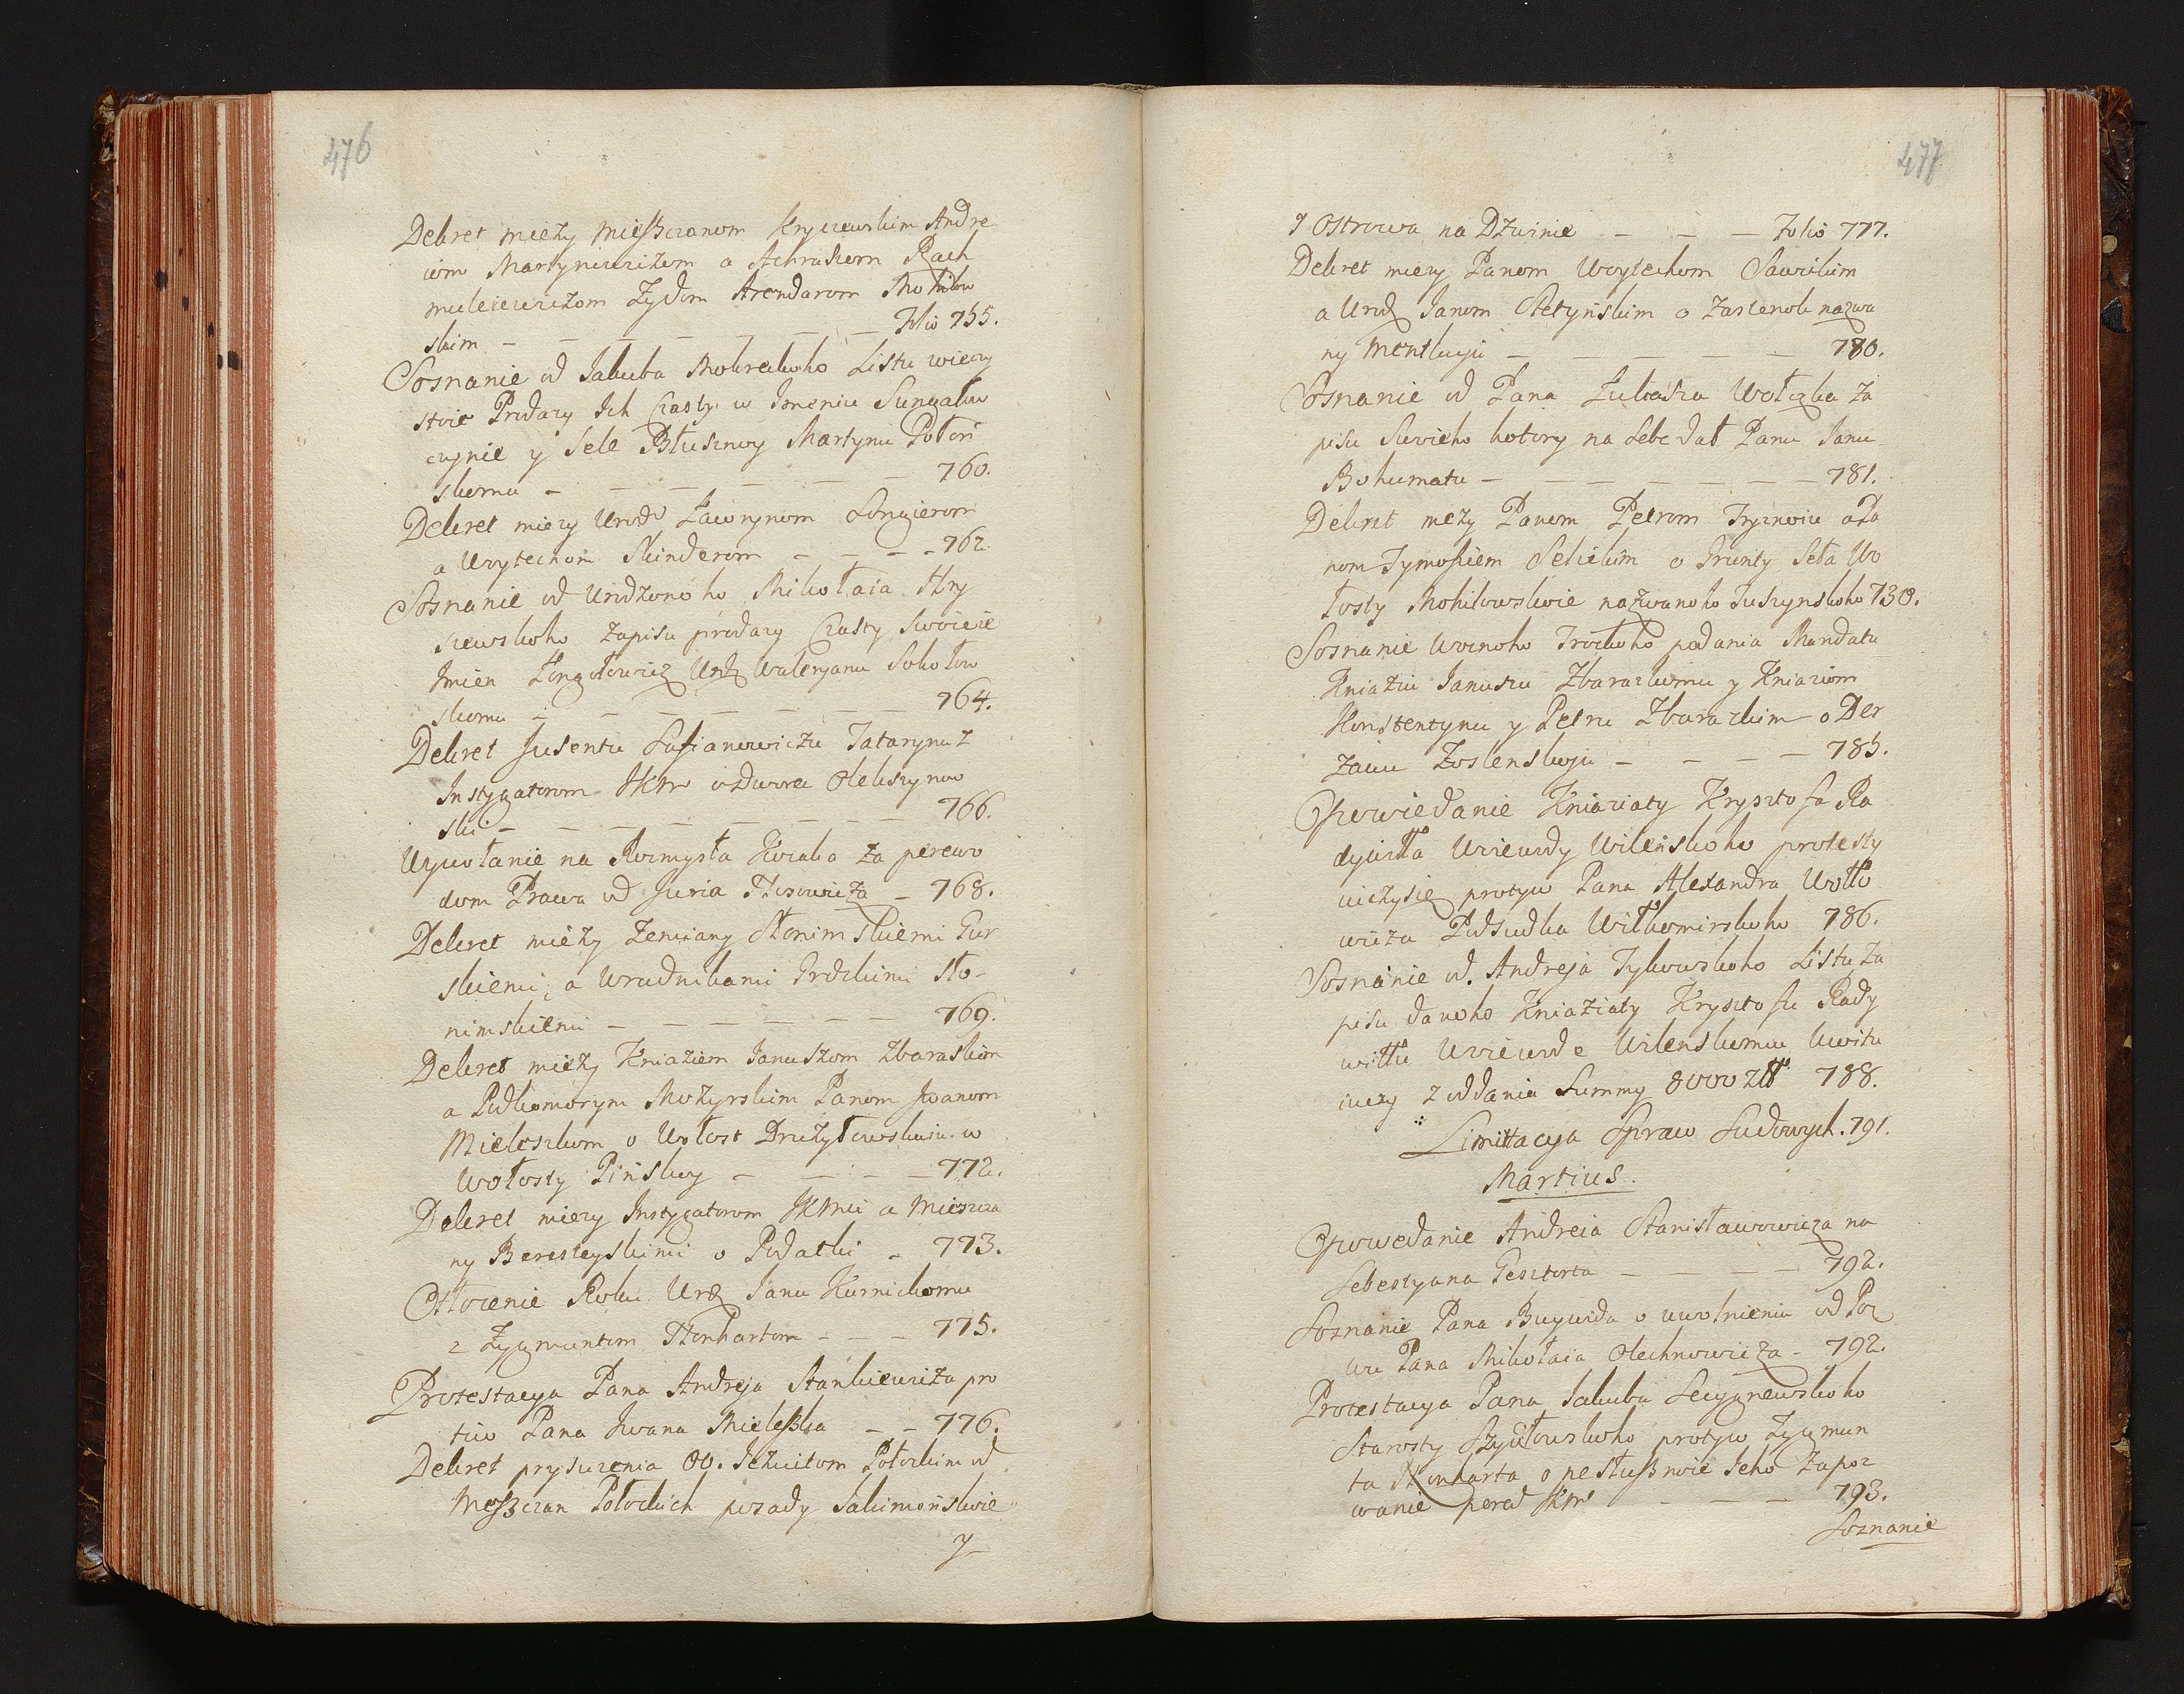 476
Dekret miezy Mieszczanom Kryczewskim Andre
iom Martynowiczom a Achrakom Rach
mieleiewiczom Zydom Arendarom Mohilow
skim – – – – – – Folio 755.
Soznanie od Jakuba Mokreckoho Listu wieczy
stoie Prodazy Ich Czasty w Imeniu Sungałow
cynie y Sele Błusznoy Martynu Połoń
skomu – – – – – – 760.
Dekret miezy Urodz Ławrynom Longierom
a Woytechom Skinderom – – – – 762
Soznanie od Urodzonoho Mikołaia Hry
szewskoho Zapisu prodazy Czasty Swoieie
Imien Longołowicz Urodz Waleryanu Sokołow
skomu – – – – – – – 764.
Dekret Jusentu Lusianowiczu Tatarynu z
Instygatorom JKM o Dworec Olekszynow
ski – – – – – – – 766.
Wywołanie na Rozmysła Kozaka za perewo
dom Prawa od Juria Ilcowicza – 768.
Dekret miezy Zemiany Słonimskiemi Gur
skiemi, a Uradnikami Grodzkimi Sło-
nimskiemi – – – – – – – 769.
Dekret miezy Kniaziem Januszom Zbaraskim
a Podkomorym Mozyrskim Panom Iwanom
Mieleszkom o Wołost Druzyłowskuiu w
Wołosty Pińskoy – – – – – 772.
Dekret miezy Instygatorom JKMci a Mieszcza
ny Beresteyskimi o Podatki – 773.
Otłozenie Roku Urdz Janu Kurnickomu
z Zygmuntom Ilonhartom – – – 775.
Protestacya Pana Andreja Stankiewicza pro
tiw Pana Iwana Mieleszka – – 776.
Dekret prysuzenia OO. Jezuitom Połockim od
Meszczan Połockich posady Jakimońskie
y
477
y Ostrowa na Dzwinie – – – Folio 777.
Dekret miezy Panom Woytechom Sawickim
a Urodz Janom Stetyńskim o Zascenok nazwa
ny Mentkuju – – – – – – 780.
Soznanie od Pana Łukasza Wołczka Za
pisu Swoieho kotory na Sebe dał Panu Janu
Bohumatu – – – – – – – 781.
Dekret mezy Panom Petrom Tryznoiu a Pa
nom Tymofiem Selickim o Grunty Seła Wo
łosty Mohilowskoie nazwanoho Tuszynskoho 730.
Soznanie Woznoho Trockoho podania Mandatu
Kniaziu Januszu Zbarazkomu y Kniaziom
Konstentynu y Petru Zbarazkim o Der
zawu Zoslenskuju – – – – 785.
Opowiedanie Kniaziaty Krysztofa Ra
dywiłła Woiewody Wileńskoho protesty
uiczysię protyw Pana Alexandra Wołło
wicza Podsudka Wiłkomirskoho 786.
Soznanie od Andreja Tykowskoho Listu Za
pisu danoho Kniaziaty Krysztofu Rady
wiłłu Woiewode Wilenskomu kwitu
iuczy z oddania Summy 8000 złł 788.
Limittacya Spraw Sudowych. 791.
Martius.
Opowedanie Andreia Stanisławowicza na
Sebestyana Gesztorta – – – – 792.
Soznanie Pana Buywida o uwolnieniu od Poz
wu Pana Mikołaia Olechnowicza – 792.
Protestacya Pana Jakuba Secygniewskoho
Starosty Szydłowskoho protyw Zygmun
ta Ilonharta o nesłusznoie Jeho Zapoz
wanie pered JKM – – – – 793.
Soznanie